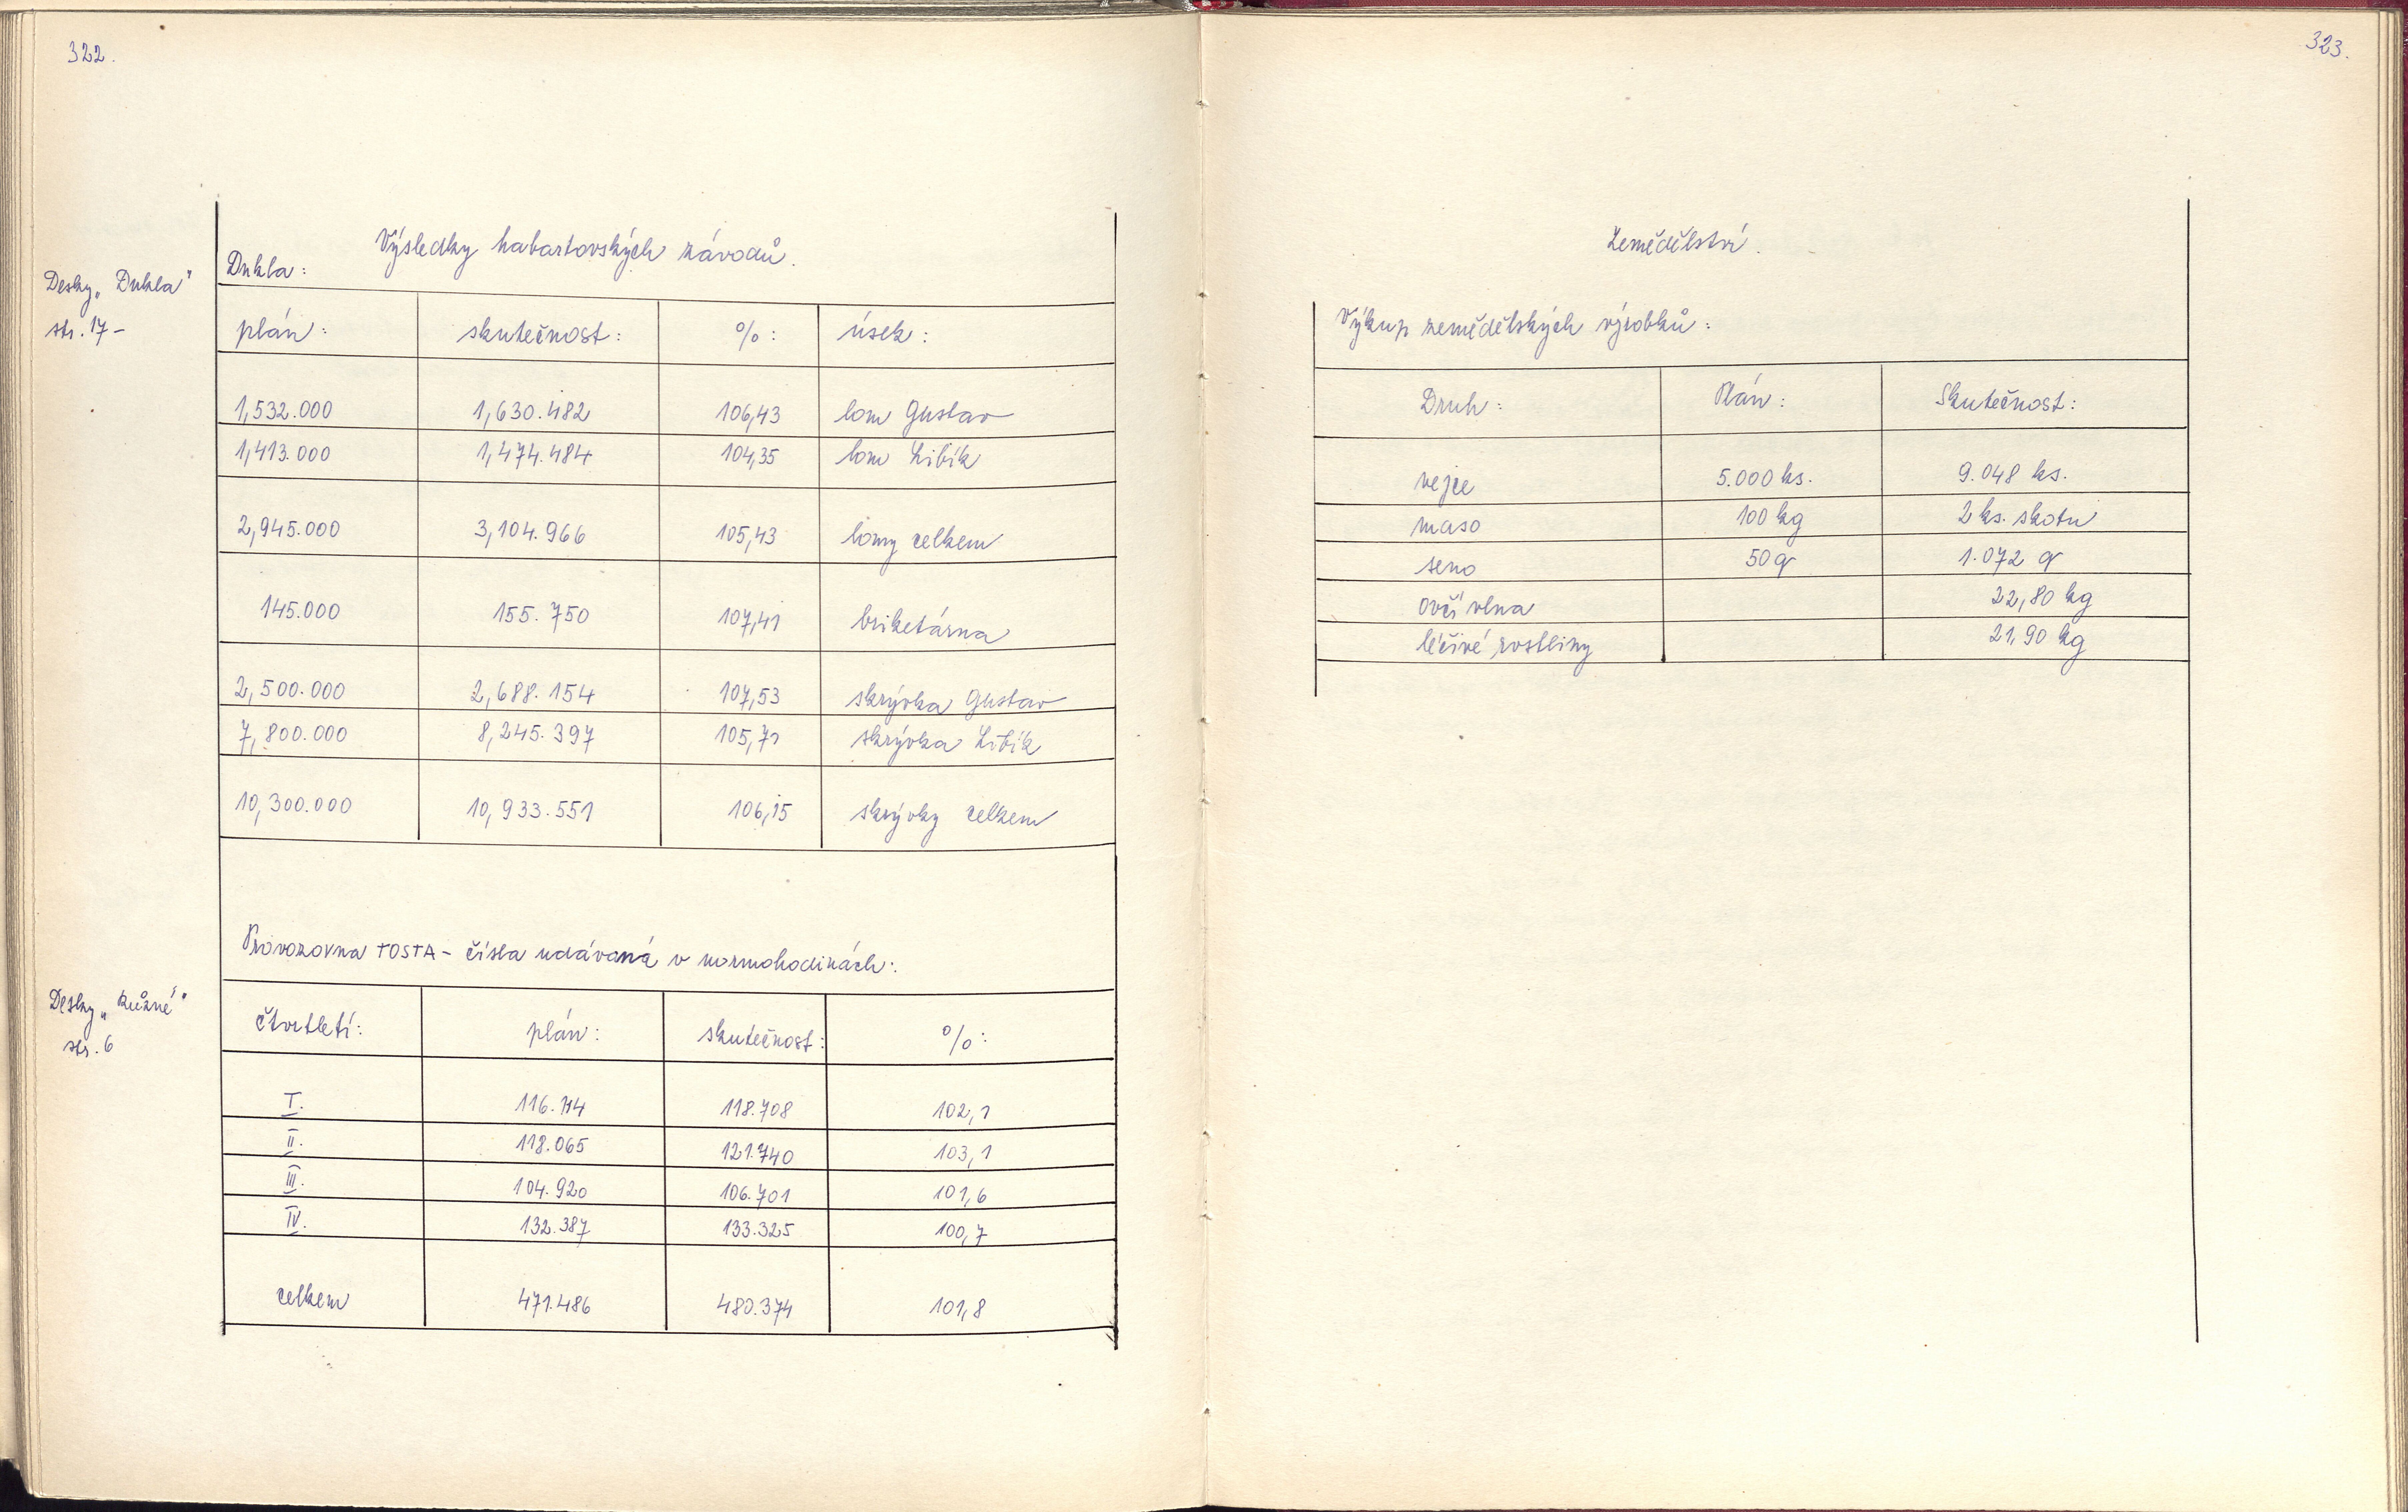 322.
Výsledky habartovských závodů.
Dukla:
Desky „Dukla"
str. 17-
plán: skutečnost: %: úsek:
1,532.000 1,630.482 106,43 lom Gustav
1,413.000 1,474.484 104,35 lom Libík
2,945.000 3,104.966 105,43 lomy celkem
145.000 155.750 107,41 briketárna
2,500.000 2,688.154 107,53 skrývka Gustav
7,800.000 8,245.397 105,71 skrývka Libík
10,300.000 10,933.551 106,15 skrývky celkem
Provozovna TOSTA - čísla udávaná v normohodinách:
Desky „Různé"
str. 6
čtvrtletí: plán: skutečnost: %:
I. 116.114 118.708 102,1
II. 118.065 121.740 103,1
III. 104.920 106.701 101,6
IV. 132.387 133.325 100,7
celkem 471.486 480.374 101,8
323.
Zemědělství.
Výkup zemědělských výrobků:
Druh: Plán: Skutečnost:
vejce 5.000 ks. 9.048 ks.
maso 100 kg 2 ks. skotu
seno 50 q 1.072 q
ovčí vlna 22,80 kg
léčivé rostliny 21,90 kg